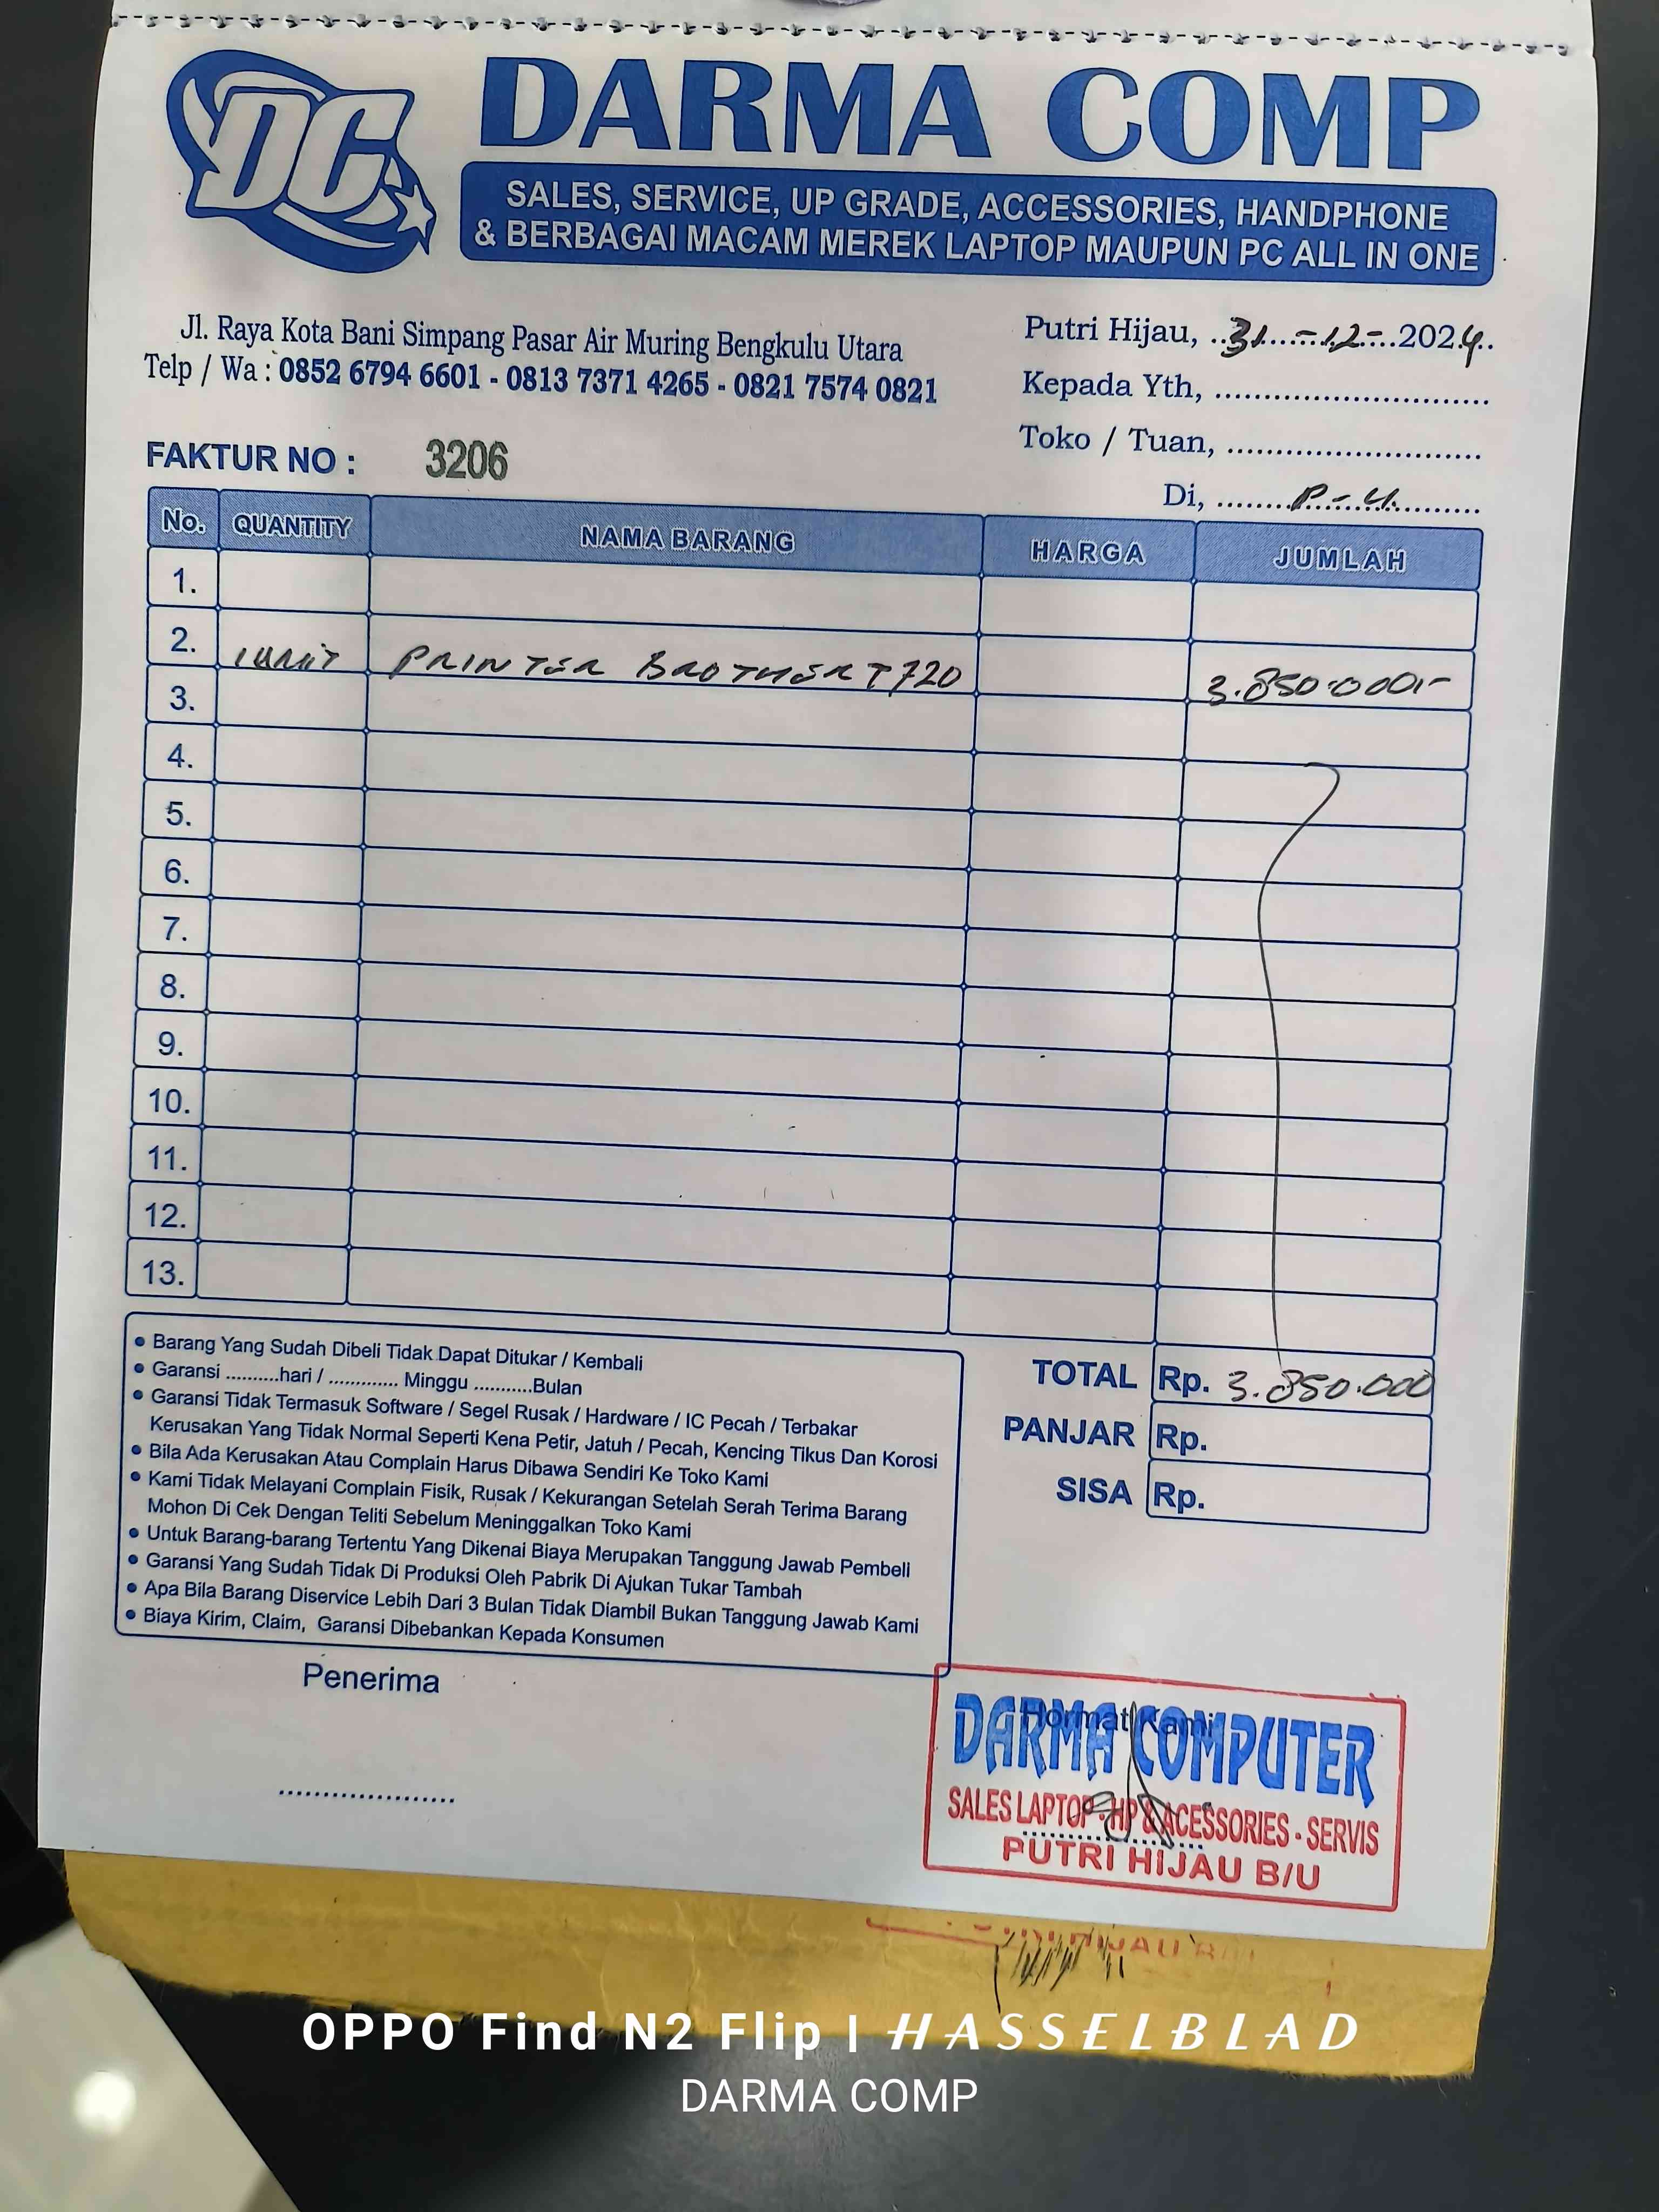 DC
DARMA COMP
SALES, SERVICE, UP GRADE, ACCESSORIES, HANDPHONE
& BERBAGAI MACAM MEREK LAPTOP MAUPUN PC ALL IN ONE
Jl. Raya Kota Bani Simpang Pasar Air Muring Bengkulu Utara
Telp / Wa : 0852 6794 6601 - 0813 7371 4265 - 0821 7574 0821
Putri Hijau, ..31...-.12-..2024..
Kepada Yth, ............................
Toko / Tuan, ..........................
Di, ........P.-.H..........
FAKTUR NO : 3206
No. QUANTITY NAMA BARANG HARGA JUMLAH
1.
2. 1 UNIT PRINTER BROTHER T720 3.850.000,-
3.
4.
5.
6.
7.
8.
9.
10.
11.
12.
13.
• Barang Yang Sudah Dibeli Tidak Dapat Ditukar / Kembali
• Garansi ..........hari / ............. Minggu ...........Bulan
• Garansi Tidak Termasuk Software / Segel Rusak / Hardware / IC Pecah / Terbakar
Kerusakan Yang Tidak Normal Seperti Kena Petir, Jatuh / Pecah, Kencing Tikus Dan Korosi
• Bila Ada Kerusakan Atau Complain Harus Dibawa Sendiri Ke Toko Kami
• Kami Tidak Melayani Complain Fisik, Rusak / Kekurangan Setelah Serah Terima Barang
Mohon Di Cek Dengan Teliti Sebelum Meninggalkan Toko Kami
• Untuk Barang-barang Tertentu Yang Dikenai Biaya Merupakan Tanggung Jawab Pembeli
• Garansi Yang Sudah Tidak Di Produksi Oleh Pabrik Di Ajukan Tukar Tambah
• Apa Bila Barang Diservice Lebih Dari 3 Bulan Tidak Diambil Bukan Tanggung Jawab Kami
• Biaya Kirim, Claim, Garansi Dibebankan Kepada Konsumen
TOTAL Rp. 3.850.000
PANJAR Rp.
SISA Rp.
Penerima
....................
Hormat Kami
DARMA COMPUTER
SALES LAPTOP - HP & ACESSORIES - SERVIS
PUTRI HIJAU B/U
HIJAU
OPPO Find N2 Flip | HASSELBLAD
DARMA COMP